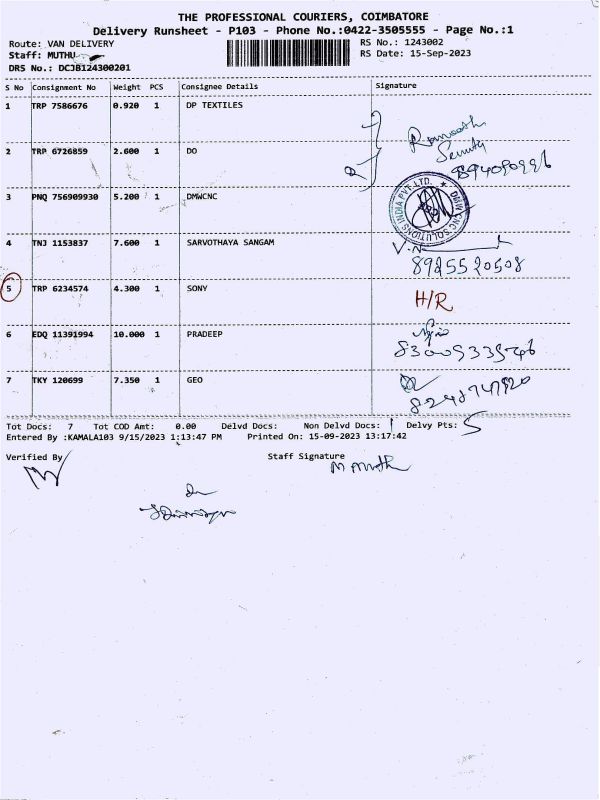 THE PROFESSIONAL COURIERS, COIMBATORE
Delivery Runsheet - P103 - Phone No.:0422-3505555 - Page No.:1
Route: VAN DELIVERY
RS No.: 1243002
Staff: MUTHU
RS Date: 15-Sep-2023
DRS No.: DCJB124300201
S No Consignment No Weight PCS Consignee Details Signature
1 TRP 7586676 0.920 1 DP TEXTILES
2 TRP 6726859 2.600 1 DO
3 PNQ 756909930 5.200 1 DMWCNC
DMW CNC SOLUTIONS INDIA PVT. LTD.
4 TNJ 1153837 7.600 1 SARVOTHAYA SANGAM
8925520508
5 TRP 6234574 4.300 1 SONY H/R
6 EDQ 11391994 10.000 1 PRADEEP
7 TKY 120699 7.350 1 GEO
Tot Docs: 7 Tot COD Amt: 0.00 Delvd Docs: Non Delvd Docs: 1 Delvy Pts: 5
Entered By :KAMALA103 9/15/2023 1:13:47 PM Printed On: 15-09-2023 13:17:42
Verified By Staff Signature